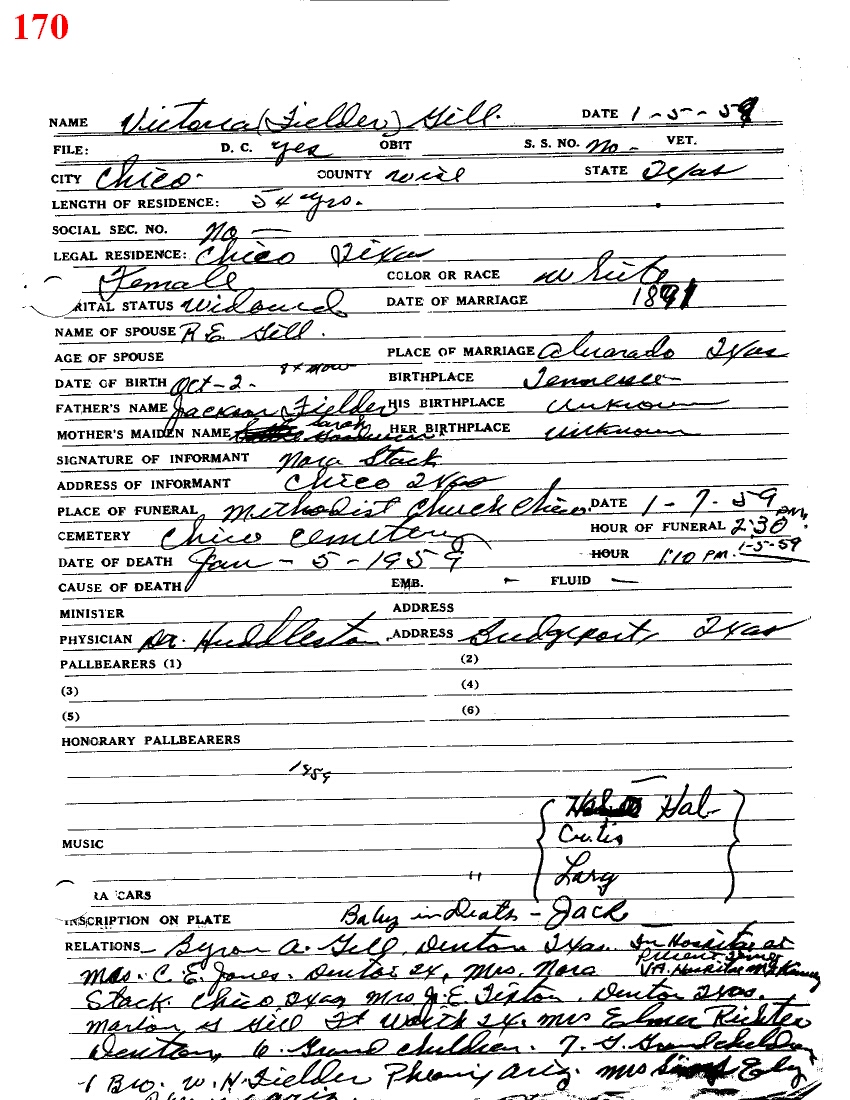 170
NAME Victoria (Fielder) Gill. DATE 1-5-59
FILE: D. C. yes OBIT S. S. NO. no - VET.
CITY Chico. COUNTY Wise STATE Texas
LENGTH OF RESIDENCE: 54 yrs.
SOCIAL SEC. NO. No —
LEGAL RESIDENCE: Chico Texas
Female COLOR OR RACE White
RITAL STATUS Widowed DATE OF MARRIAGE 1891
NAME OF SPOUSE R E. Gill.
AGE OF SPOUSE PLACE OF MARRIAGE Alvarado Texas
DATE OF BIRTH Oct-2- BIRTHPLACE Tennessee
FATHER'S NAME Jackson Fielder HIS BIRTHPLACE Unknown
MOTHER'S MAIDEN NAME Sarah HER BIRTHPLACE Unknown
SIGNATURE OF INFORMANT Nora Stack
ADDRESS OF INFORMANT Chico Texas
PLACE OF FUNERAL Methodist Church Chico. DATE 1-7-59
CEMETERY Chico Cemetery HOUR OF FUNERAL 2:30 P.M.
DATE OF DEATH Jan - 5 - 1959 HOUR 1:10 PM. 1-5-59
CAUSE OF DEATH EMB. - FLUID —
MINISTER ADDRESS
PHYSICIAN Dr. Huddleston. ADDRESS Bridgeport, Texas
PALLBEARERS (1) (2)
(3) (4)
(5) (6)
HONORARY PALLBEARERS
1959
Hal
Curtis
MUSIC
Lary
"
RA CARS
INSCRIPTION ON PLATE Baby in Death - Jack
RELATIONS - Byron A. Gill, Denton Texas. In Hospital at
Present time
V.A. Hospital McKinney
Mrs. C. E. Jones. Denton Tx, Mrs. Nora
Stack. Chico Texas Mrs J. E. Denton Texas.
Marion Gill Ft Worth Tx. Mrs Elmer Richter
Denton, 6. Grand children. 7. G. Grandchildren
1 Bro. W. H. Fielder Phoenix Ariz. Mrs Ely